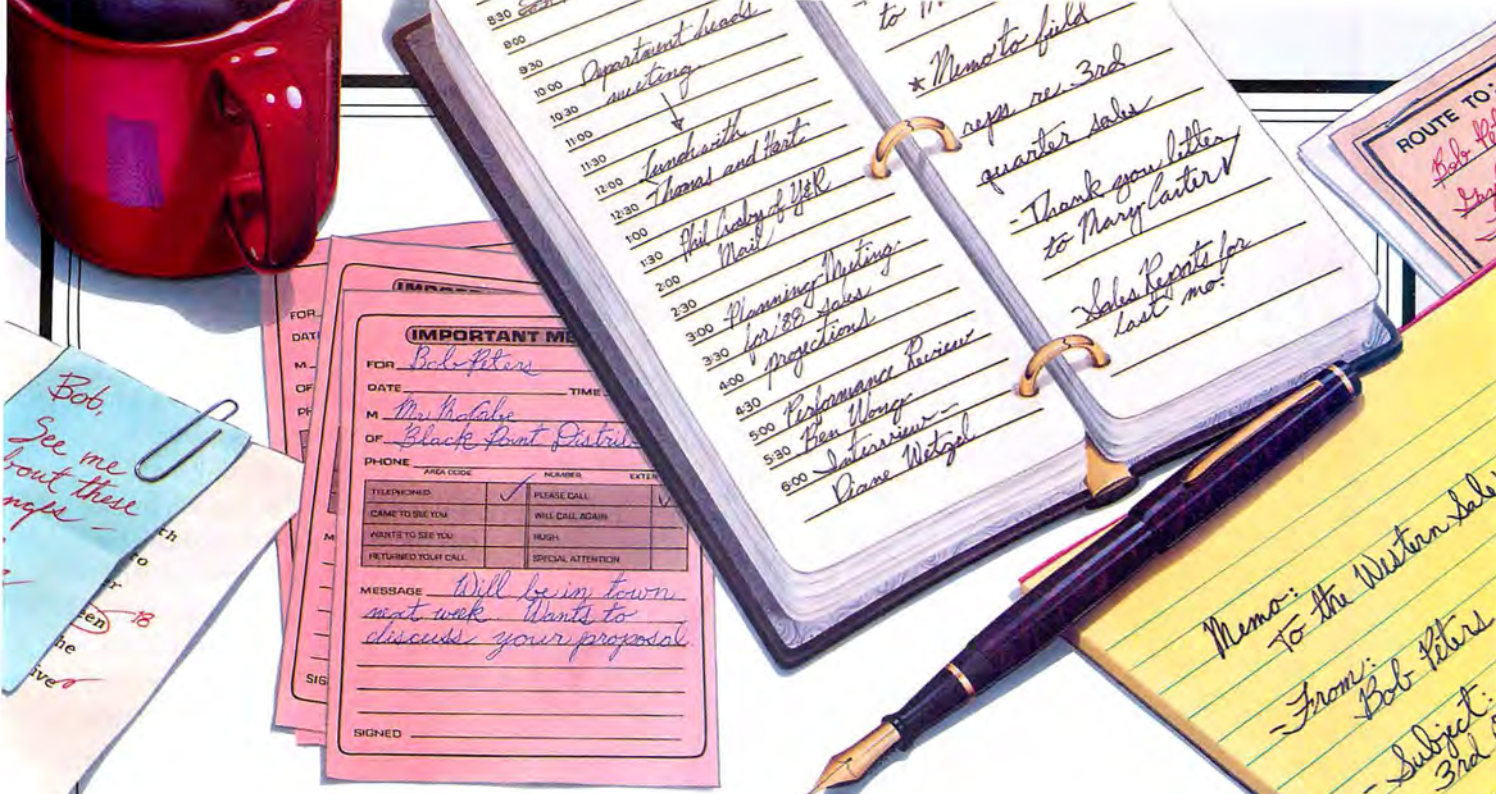 8:30
9:00
9:30
10:00 Department heads
10:30 meeting
11:00
11:30 Lunch with
12:00 Thomas and Hart
12:30
1:00 Phil Crosby of Y&R
1:30 Mail
2:00
2:30 Planning Meeting
3:00 for '88 sales
3:30 projections
4:00
4:30 Performance Review
5:00 Ben Wong
5:30 Interview -
6:00 Diane Wetzel
to
* Memo to field
reps re. 3rd
quarter sales
- Thank you letter
to Mary Carter
- Sales Reports for
last mo.
ROUTE TO:
Bob
FOR
DATE
M
OF
SIG
IMPORTANT ME
FOR Bob Peters
DATE TIME
M Mr. McCabe
OF Black Point Distri
PHONE
AREA CODE NUMBER EXTEN
TELEPHONED PLEASE CALL
CAME TO SEE YOU WILL CALL AGAIN
WANTS TO SEE YOU RUSH
RETURNED YOUR CALL SPECIAL ATTENTION
MESSAGE Will be in town
next week. Wants to
discuss your proposal.
SIGNED
Bob,
See me
bout these
nges -
th
to
er
een 18
he
ive
Memo:
To the Western Sales
- From:
Bob Peters
- Subject:
3rd